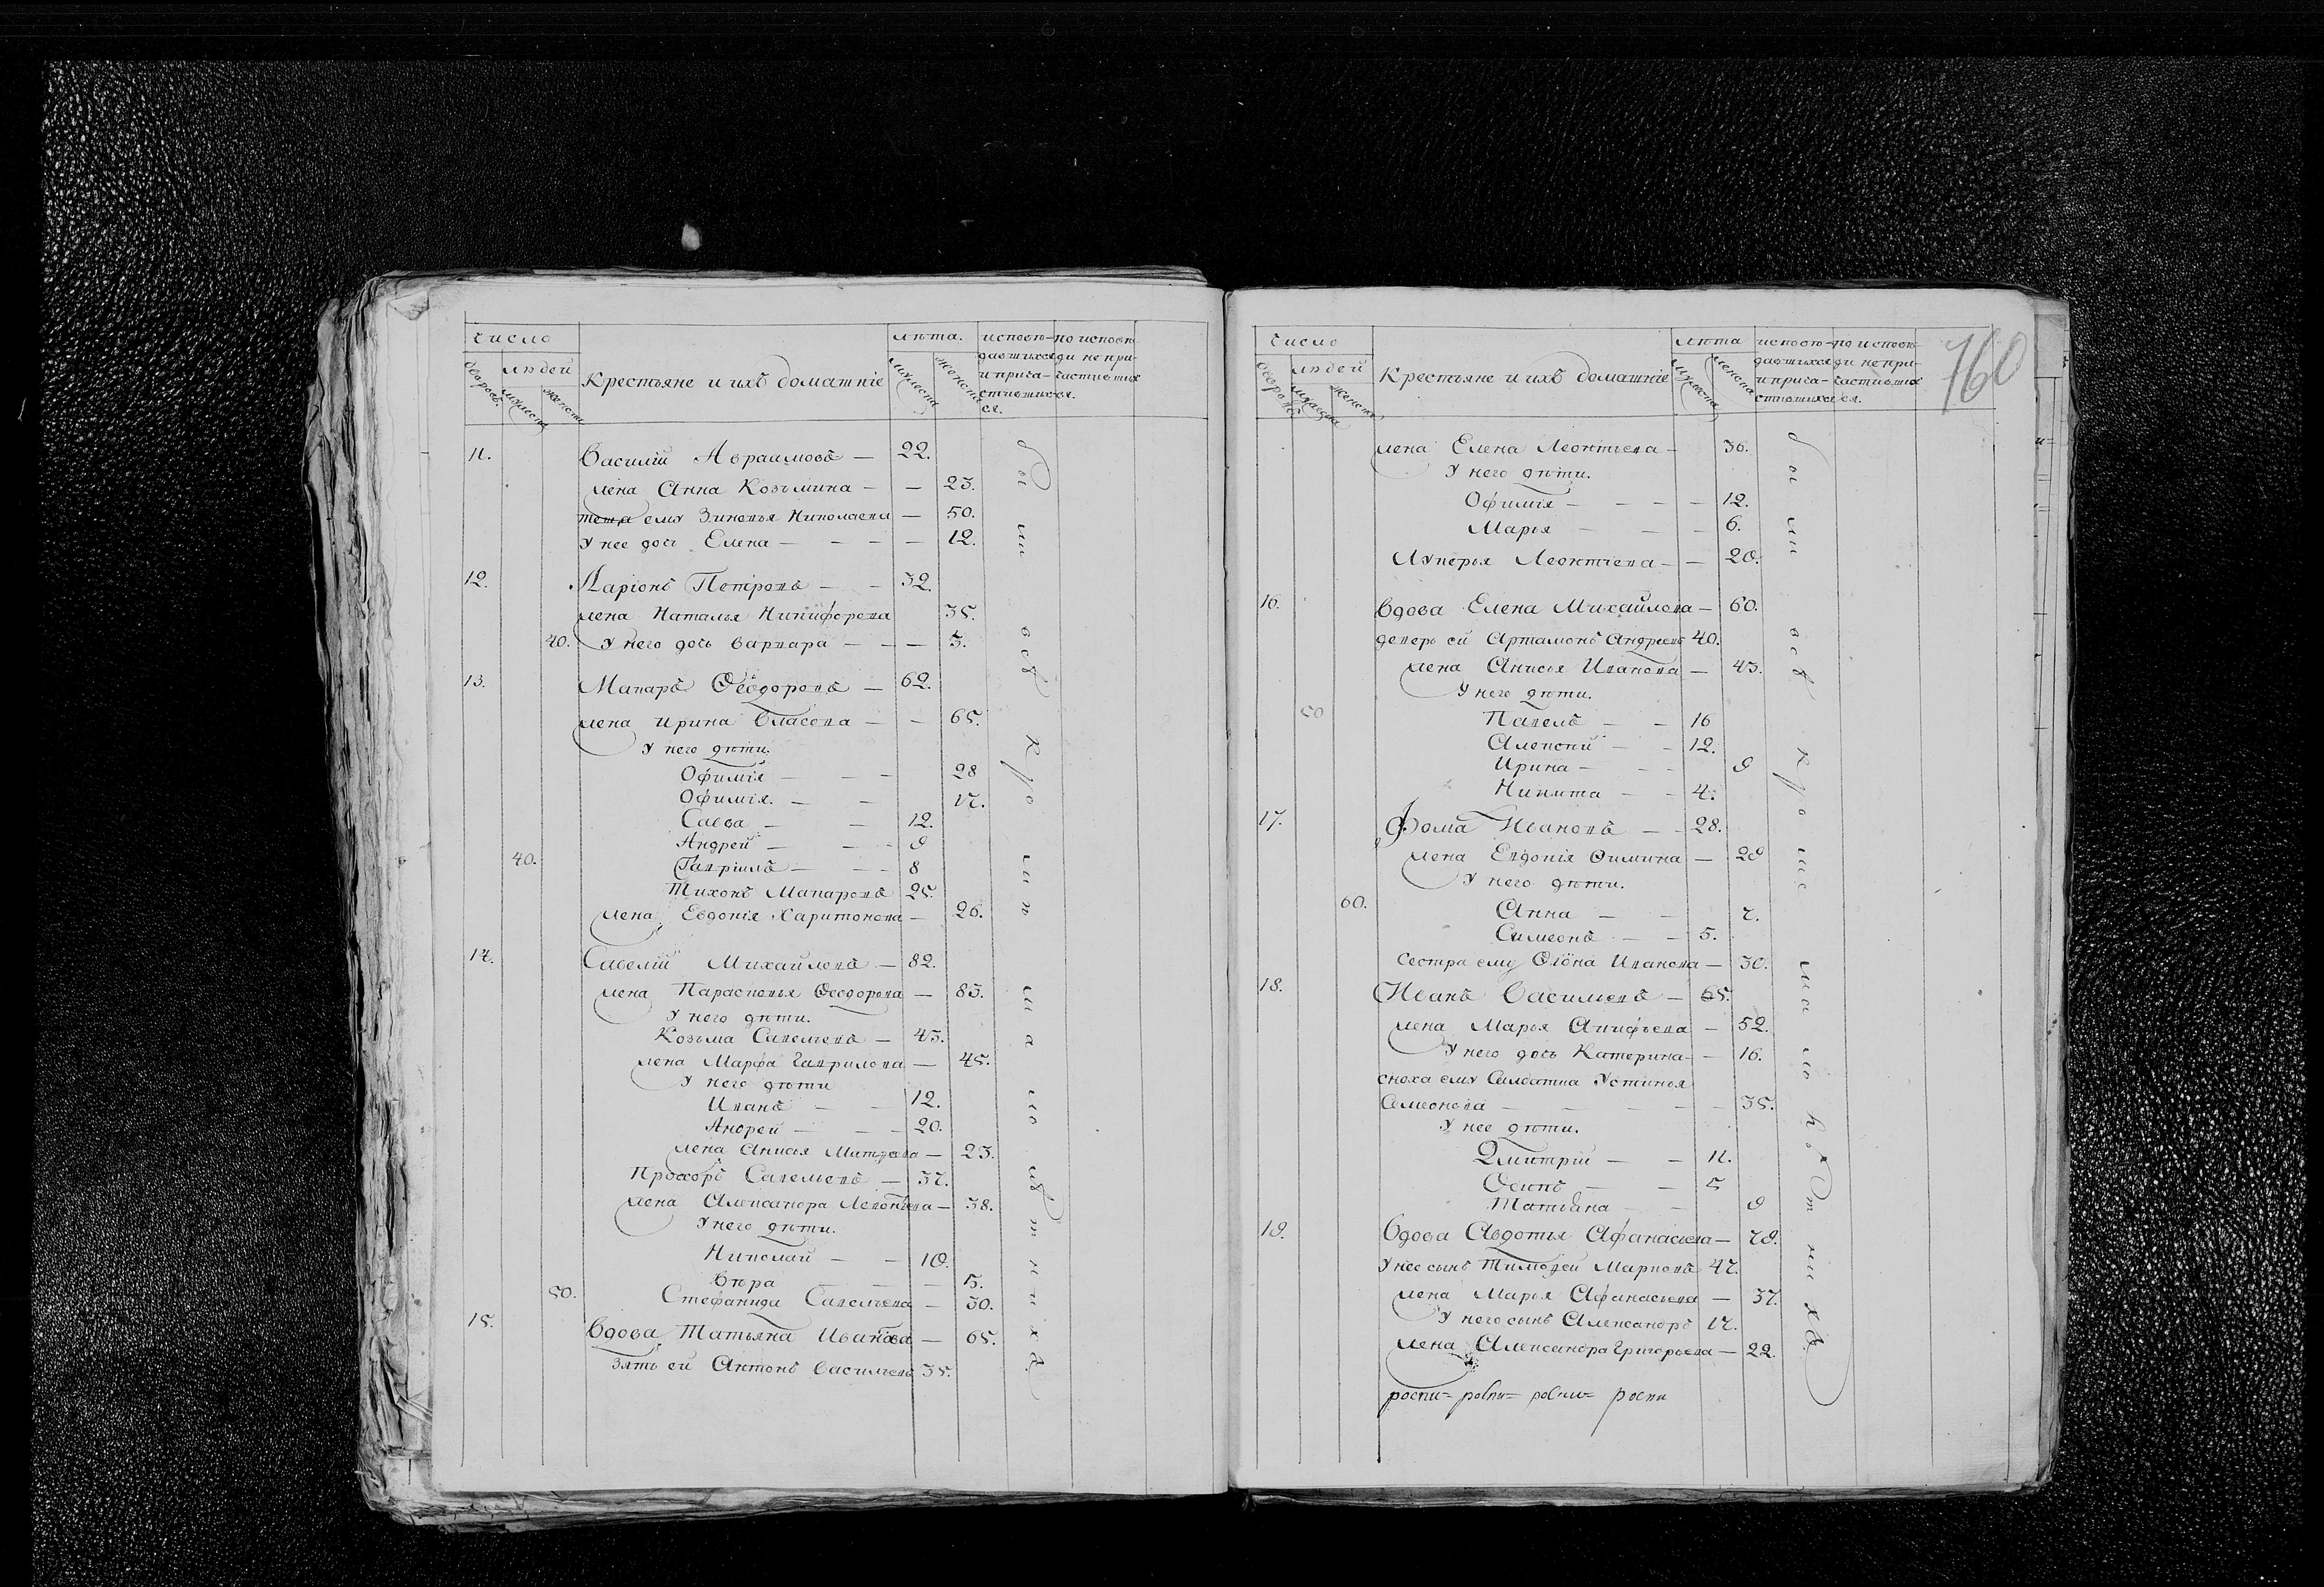 число
людей
дворовъ.
мужеска
женска
Крестьяне и ихъ домашніе
лѣта.
мужеска
женска
исповѣ-
давшихся
и прича-
стивших
ся.
по исповѣ
ди не при-
частивших
ся.
11. Василій Авраамовъ — 22.
жена Анна Козьмина — — 23.
теща ему Зиновья Николаева — 50.
У нее дочь Елена — — — — 12.
12. Ларіонъ Петровъ — — 32.
жена Наталья Никифорова 35.
40. У него дочь Варвара — — — 3.
13. Макаръ Ѳеодоровъ — 62.
жена Ирина Власова — — 65.
У него дѣти.
Офимія — — — 28
Офимія. — — 17.
Савва — — 12.
Андрей — — — 9
40. Гавріилъ — — — 8
Тихонъ Макаровъ 25.
жена Евдокія Харитонова — 26.
14. Савелій Михайловъ — 82.
жена Парасковья Ѳеодорова — 83.
У него дѣти.
Козьма Савельевъ — 43.
жена Марфа Гаврилова — 45.
У него дѣти
Иванъ — — 12.
Андрей — — — 20.
жена Анисья Матвѣева — 23.
Прохоръ Савельевъ — 37.
жена Александра Леонтьева — 38.
У него дѣти.
Николай — — 10.
Вѣра — — — 5.
50. Стефанида Савельева — 30.
15. Вдова Татьяна Иванова — 65.
Зять ей Антонъ Васильевъ 35.
были всѣ кромѣ малолѣтнихъ
760
число
людей
дворовъ
мужеска
женска
Крестьяне и ихъ домашніе
лѣта
мужеска
женска
исповѣ-
давшихся
и прича-
стившихся
по исповѣ
ди не при-
частивших
ся.
жена Елена Леонтьева — 36.
У него дѣти.
Офимія — — — — 12.
Марья — — — 6.
Лукерья Леонтьева — — 20.
16. Вдова Елена Михайлова — 60.
деверь ей Артамонъ Андреевъ 40.
жена Анисья Иванова — 43.
У него дѣти.
50 Павелъ — — 16
Алексей — — 12.
Ирина — — — 9
Никита — — 4.
17. Фома Ивановъ — — 28.
жена Евдокія Фимина — 29
У него дѣти.
60. Анна — — 7.
Симеонъ — — 5.
Сестра ему Ѳіона Иванова — 30.
18. Иванъ Васильевъ — 65.
жена Марья Анифьева — 52.
У него дочь Катерина — — 16.
сноха ему Салдатка Устинья
Семионова — — — — 35.
У нее дѣти.
Дмитрій — — 11.
Осипъ — — 5
Татьяна — — 9
19. Вдова Авдотья Афанасьева — 79.
У нее сынъ Тимофей Марковъ 47.
жена Марья Афанасьева — 37.
У него сынъ Александръ 17.
жена Александра Григорьева — 22.
были всѣ кромѣ малолѣтнихъ
роспи= роспи= роспи= роспи